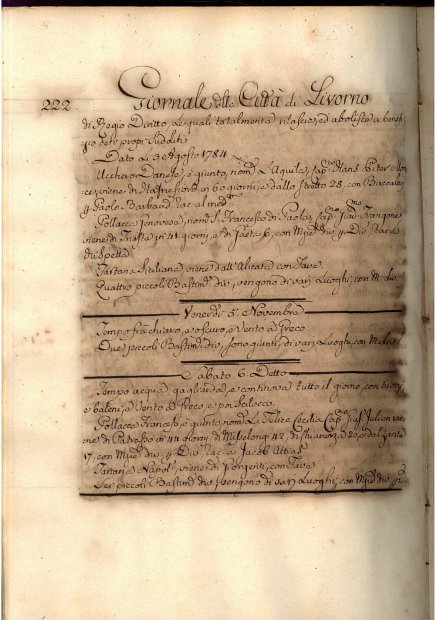 222
Giornale della Città di Livorno
di Regio Diritto, le quali totalmente rilascio, ed abolisco a benefi
zio dei propri sudditi
Dato li 3 Agosto 1784
Ucchero Danese, è giunto, nom.º L'Aquila, Cap.no Hans
viene di in 60 giorni, e dallo stretto 28, con
Paolo rac. al med.mo
Pollacca Genovese, nom.º S. Francesco di Paola, Cap.no
viene di Trieste in 41 giorni, e di Gaeta 6, con div.
Tartana Siciliana, viene dall'Alicata con Fave
Quattro piccoli Bastim.ti div. vengono di varj Luoghi, con M. div.
Venerdì 5 Novembre
Tempo frà chiaro, e oscuro, e Vento a Greco
Due piccoli Bastim.ti div. sono giunti, di varj Luoghi, con
Sabato 6 Detto
Tempo acqua gagliarda, e continova tutto il giorno, con tuoni,
e baleni, e Vento a Greco, e poi Scilocco
Pollacca Francese, è giunto, nom.ª La Felice Cecilia, Cap.no Julien vie
ne di Patrasso in 44 giorni, di 42, di 20, e dal Zante
17, con div. rac. a Jacob Attias
Tartana Napol. viene di Girgenti, con Fave
Sei piccoli Bastim.ti div. vengono di varj Luoghi, con div.